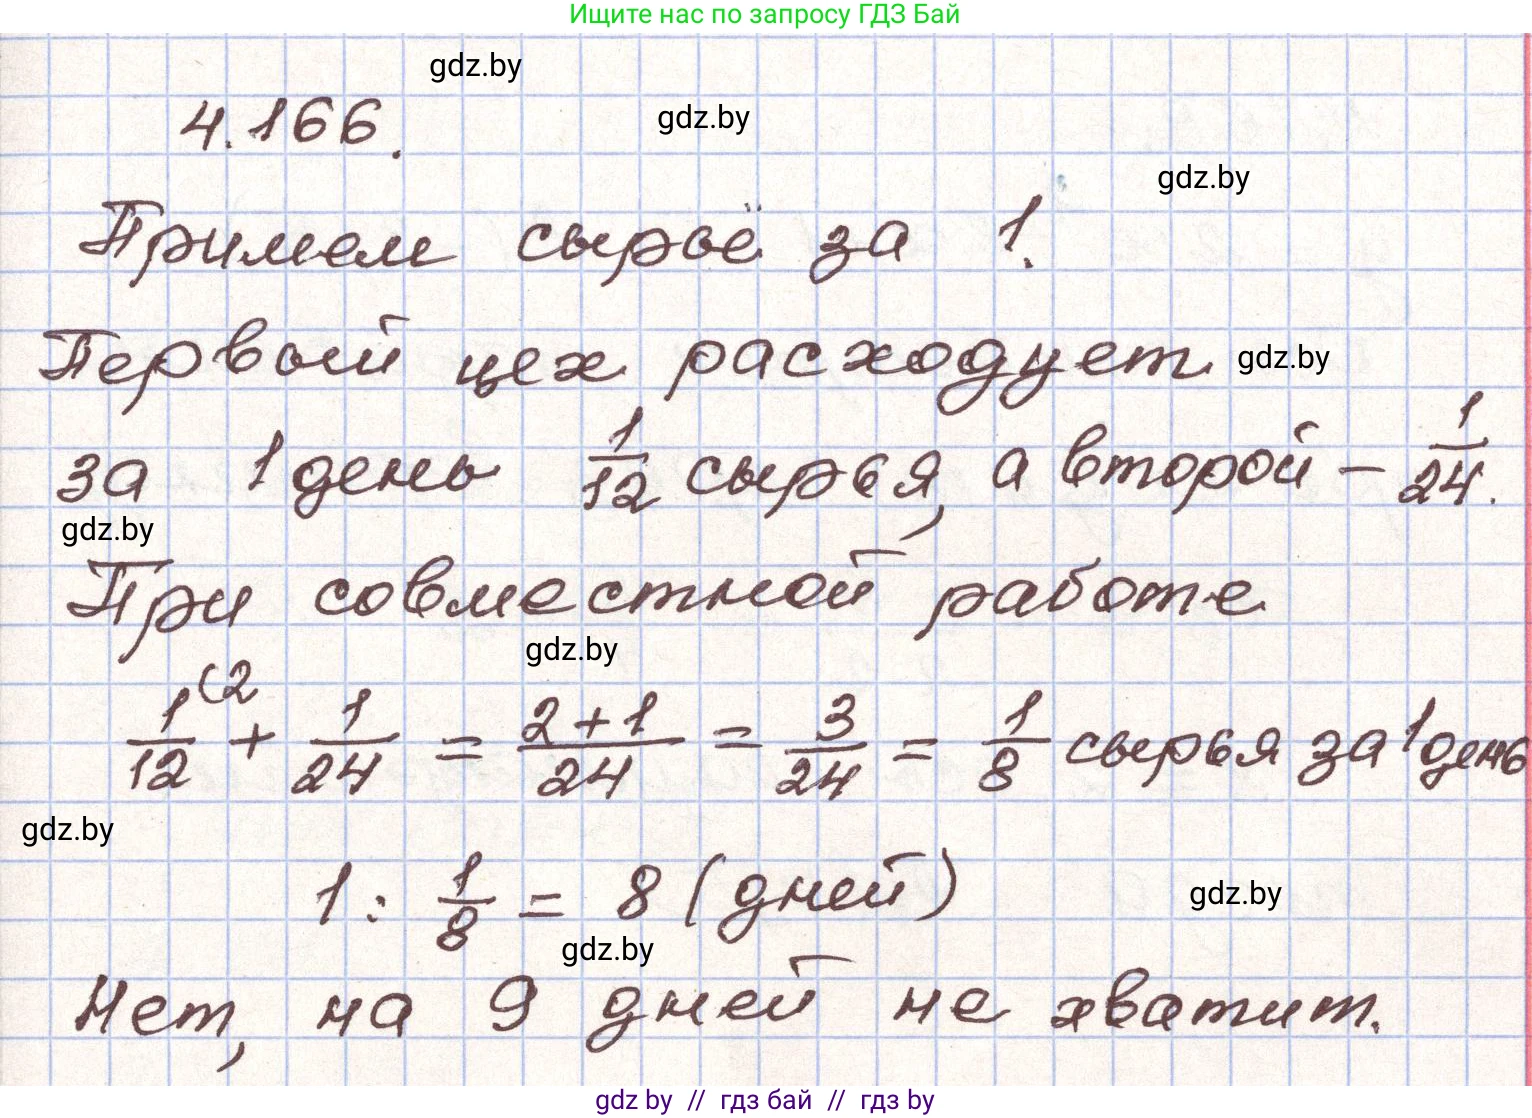 Ищите нас по запросу ГДЗ Бай
gdz.by
4.166.
gdz.by
gdz.by
Примем сырьё за 1.
Первый цех расходует
gdz.by
за 1 день 1/12 сырья, а второй – 1/24.
gdz.by
При совместной работе
gdz.by
1/12 (2 + 1/24 = 2+1/24 = 3/24 = 1/8 сырья за 1 день
gdz.by
1 : 1/8 = 8 (дней)
gdz.by
gdz.by
Нет, на 9 дней не хватит.
gdz by // гдз бай // гдз by